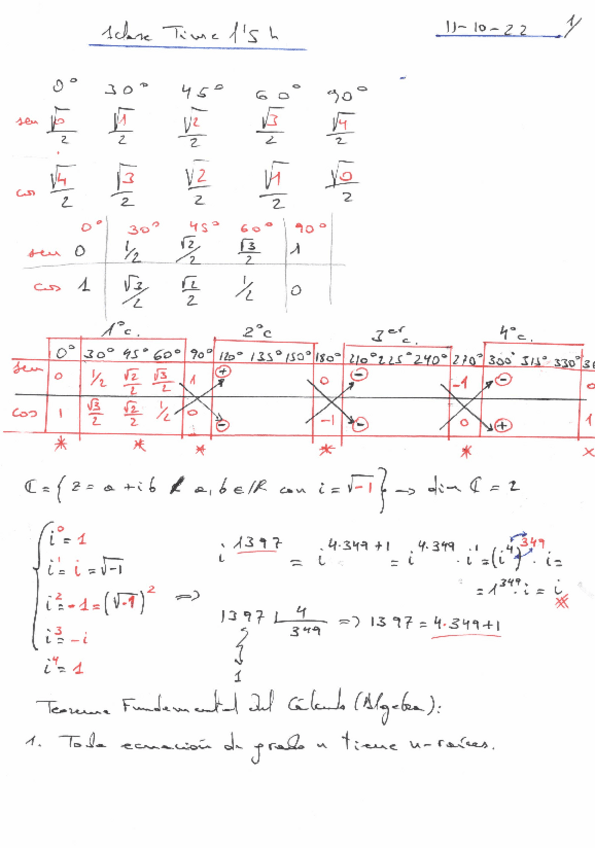 1clase Time 1'5 h 11-10-22 1/
0° 30° 45° 60° 90°
sen √0/2 √1/2 √2/2 √3/2 √4/2
cos √4/2 √3/2 √2/2 √1/2 √0/2
0° 30° 45° 60° 90°
sen 0 1/2 √2/2 √3/2 1
cos 1 √3/2 √2/2 1/2 0
1°c. 2°c 3erc. 4°c.
0° 30° 45° 60° 90° 120° 135° 150° 180° 210° 225° 240° 270° 300° 315° 330°
sen 0 1/2 √2/2 √3/2 1 + 0 - -1 - 0
cos 1 √3/2 √2/2 1/2 0 - -1 - 0 + 1
* * * * * ×
ℂ = { z = a + ib / a, b ∈ ℝ con i = √-1 } → dim ℂ = 2
i^0 = 1
i^1 = i = √-1
i^2 = -1 = (√-1)^2 ⇒
i^3 = -i
i^4 = 1
i^1397 = i^(4·349+1) = i^(4·349) · i^1 = (i^4)^349 · i =
= 1^349 · i = i *
1397 | 4 ⇒ 1397 = 4·349+1
349
1
Teorema Fundamental del Cálculo (Algebra):
1. Toda ecuación de grado n tiene n-raíces.